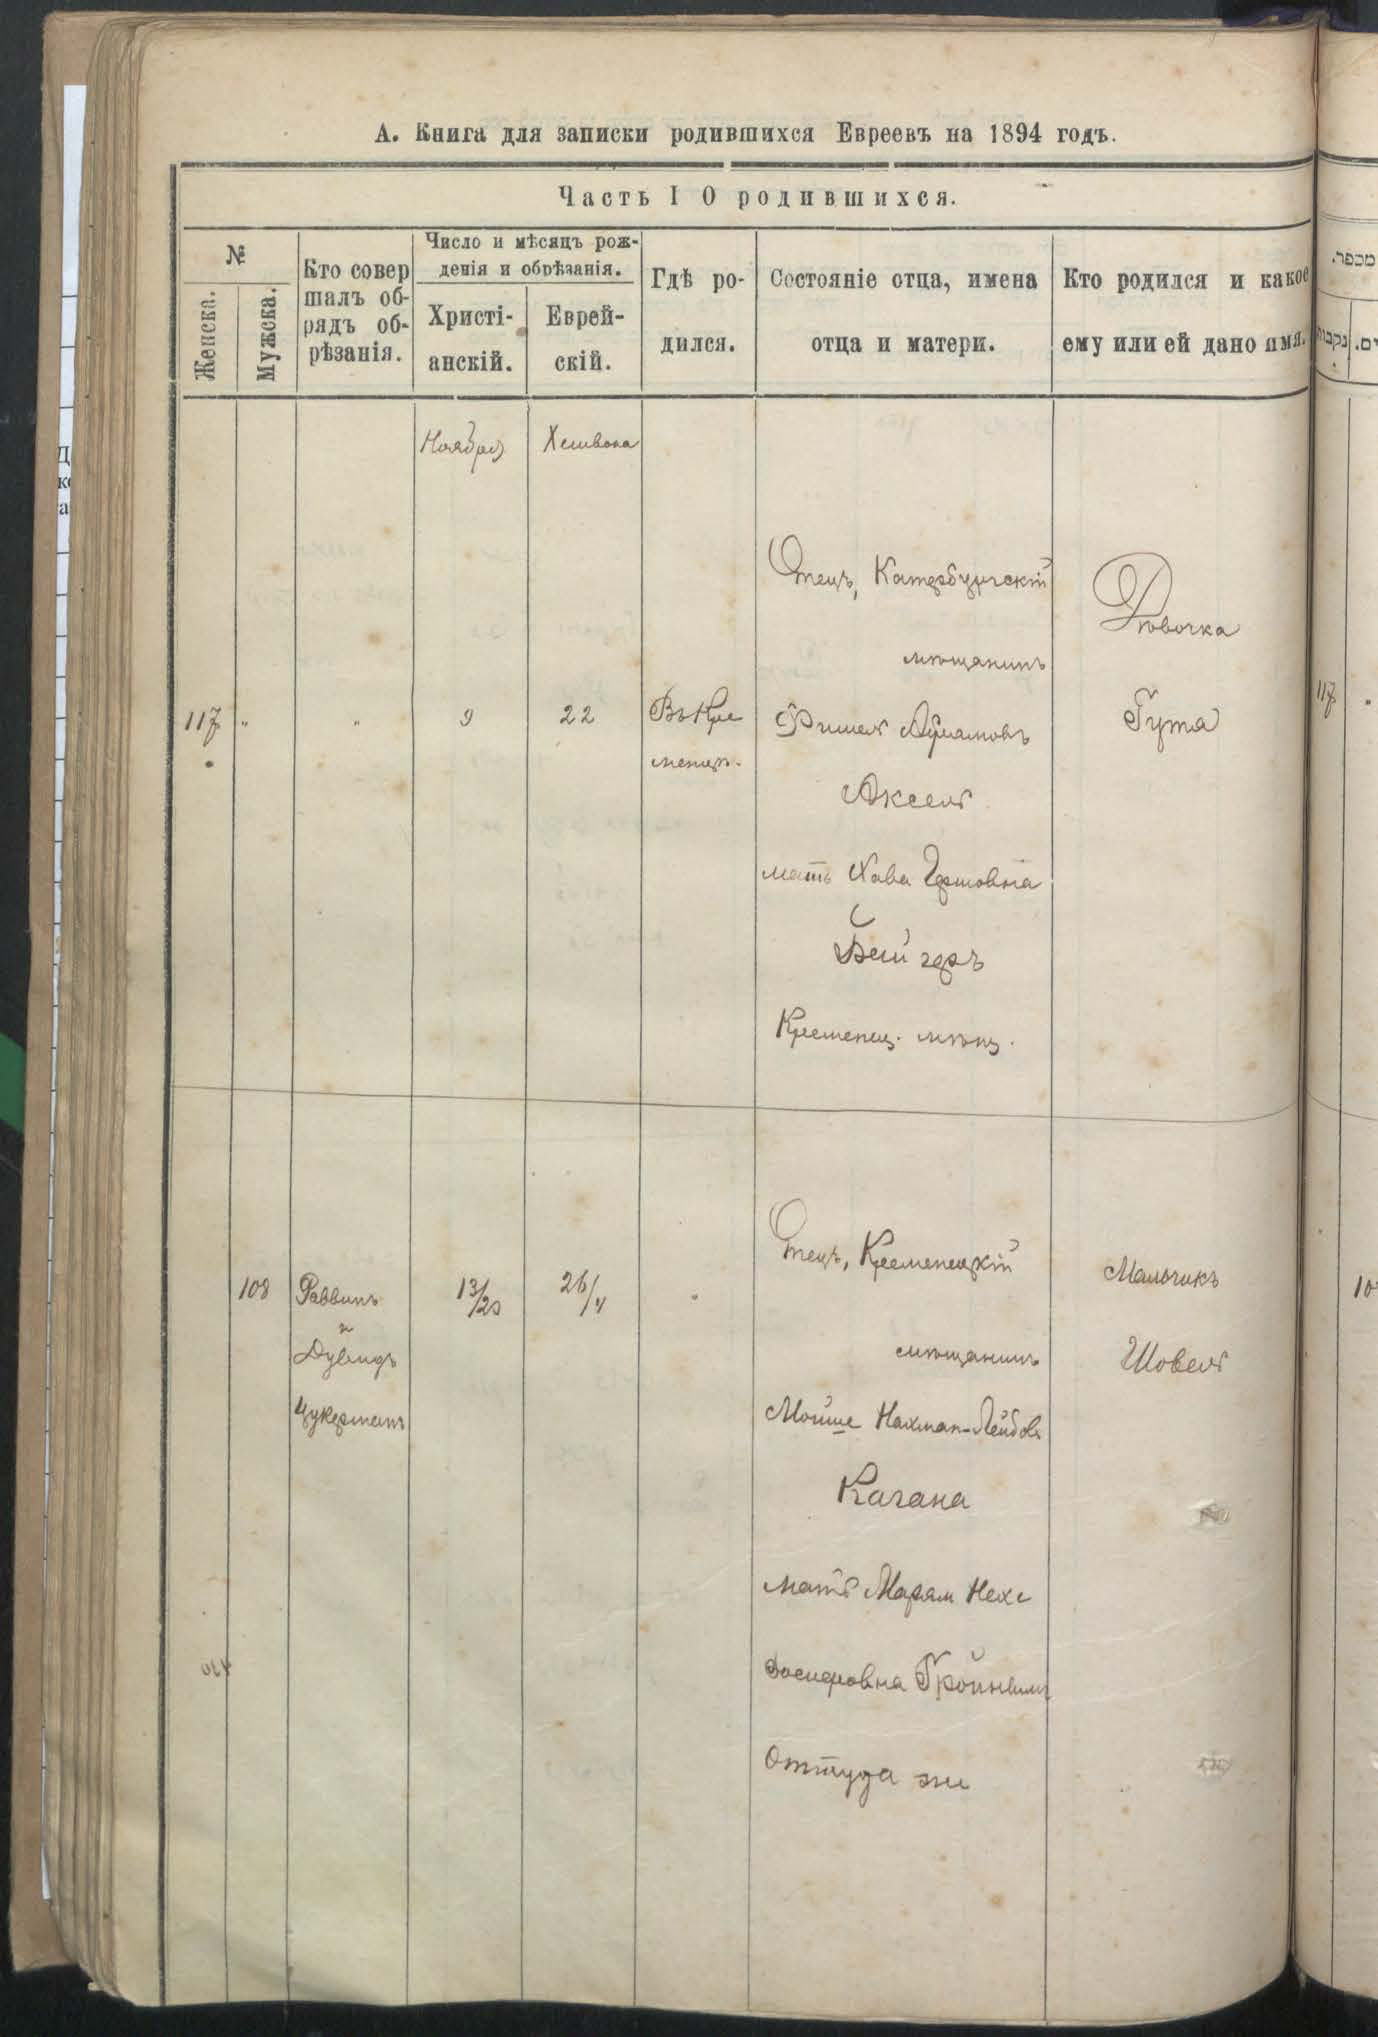 А. Книга для записки родившихся Евреевъ на 1894 годъ.
Часть I О родившихся.
№
Женска.
Мужска.
Кто совер
шалъ об-
рядъ об-
рѣзанія.
Число и мѣсяцъ рож-
денія и обрѣзанія.
Христі-
анскій.
Еврей-
скій.
Гдѣ ро-
дился.
Состояніе отца, имена
отца и матери.
Кто родился и какое
ему или ей дано имя.
Ноября
Хешвона
117
"
"
9
22
Въ Кре
менцѣ.
Отецъ, Катербургскій
мѣщанинъ
Фишель Абрамовъ
Аксель
мать Хава Гершовна
Бейгеръ
Кременец. мѣщ.
Дѣвочка
Гутя
108
Раввинъ
и
Дувидъ
Цукерманъ
13/20
26/4
"
Отецъ, Кременецкій
мѣщанинъ
Мойше Нахман-Лейбовъ
Кагана
мать Марям Нехе
Іосифовна
Оттуда же
Мальчикъ
Шовель
מספר.
נקבות
ים.
117
"
10